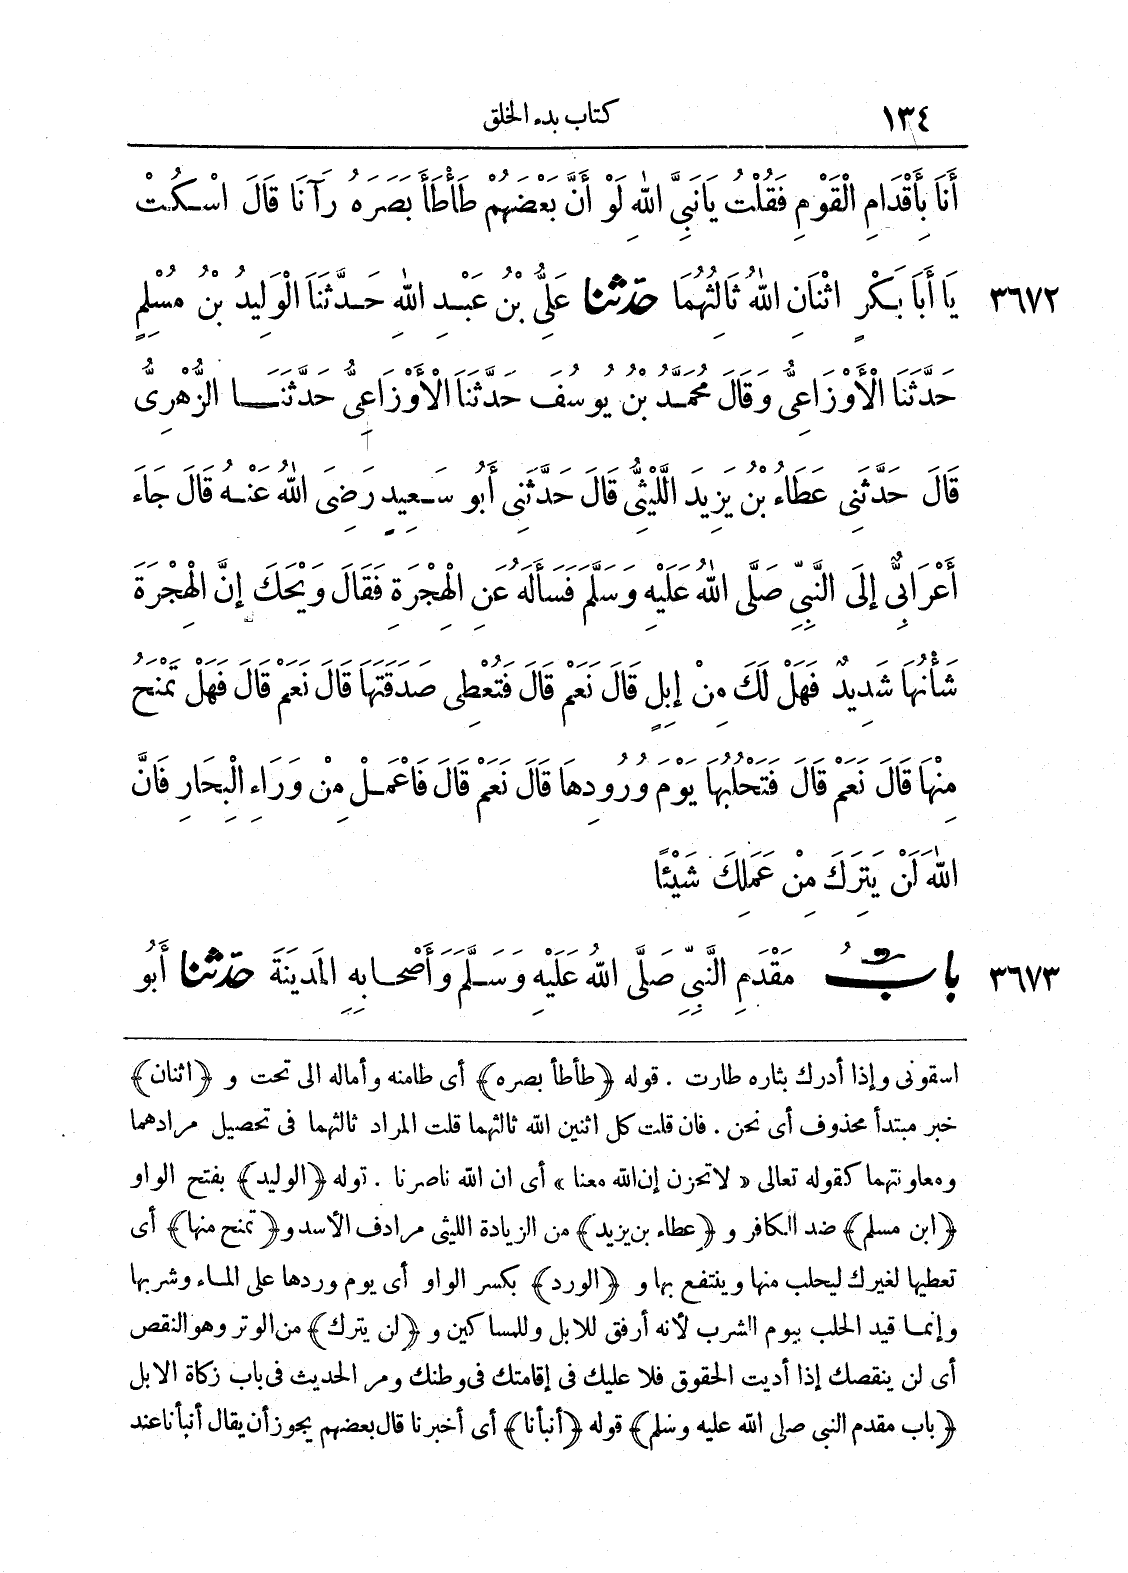 ١٣٤ كتاب بدء الخلق
أَنَا بِأَقْدَامِ الْقَوْمِ فَقُلْتُ يَانَبِىَّ اللهِ لَوْ أَنَّ بَعْضَهُمْ طَأْطَأَ بَصَرَهُ رَآنَا قَالَ اسْكُتْ
٣٦٧٢ يَا أَبَا بَكْرٍ اثْنَانِ اللهُ ثَالِثُهُمَا حَدَّثَنَا عَلِىُّ بْنُ عَبْدِ اللهِ حَدَّثَنَا الْوَلِيدُ بْنُ مُسْلِمٍ
حَدَّثَنَا الْأَوْزَاعِىُّ وَقَالَ مُحَمَّدُ بْنُ يُوسُفَ حَدَّثَنَا الْأَوْزَاعِىُّ حَدَّثَنَا الزُّهْرِىُّ
قَالَ حَدَّثَنِى عَطَاءُ بْنُ يَزِيدَ اللَّيْثِىُّ قَالَ حَدَّثَنِى أَبُو سَعِيدٍ رَضِىَ اللهُ عَنْهُ قَالَ جَاءَ
أَعْرَابِىٌّ إِلَى النَّبِىِّ صَلَّى اللهُ عَلَيْهِ وَسَلَّمَ فَسَأَلَهُ عَنِ الْهِجْرَةِ فَقَالَ وَيْحَكَ إِنَّ الْهِجْرَةَ
شَأْنُهَا شَدِيدٌ فَهَلْ لَكَ مِنْ إِبِلٍ قَالَ نَعَمْ قَالَ فَتُعْطِى صَدَقَتَهَا قَالَ نَعَمْ قَالَ فَهَلْ تَمْنَحُ
مِنْهَا قَالَ نَعَمْ قَالَ فَتَحْلُبُهَا يَوْمَ وُرُودِهَا قَالَ نَعَمْ قَالَ فَاعْمَلْ مِنْ وَرَاءِ الْبِحَارِ فَانَّ
اللهَ لَنْ يَتِرَكَ مِنْ عَمَلِكَ شَيْئًا
٣٦٧٣ بَابُ مَقْدَمِ النَّبِىِّ صَلَّى اللهُ عَلَيْهِ وَسَلَّمَ وَأَصْحَابِهِ الْمَدِينَةَ حَدَّثَنَا أَبُو
اسقونى وإذا أدرك بثاره طارت . قوله ﴿طأطأ بصره﴾ أى طامنه وأماله الى تحت و ﴿اثنان﴾
خبر مبتدأ محذوف أى نحن . فان قلت كل اثنين الله ثالثهما قلت المراد ثالثهما فى تحصيل مرادهما
ومعاونتهما كقوله تعالى «لاتحزن إن الله معنا» أى ان الله ناصرنا . قوله ﴿الوليد﴾ بفتح الواو
﴿ابن مسلم﴾ ضد الكافر و ﴿عطاء بن يزيد﴾ من الزيادة الليثى مرادف الأسد و ﴿تمنح منها﴾ أى
تعطيها لغيرك ليحلب منها وينتفع بها و ﴿الورد﴾ بكسر الواو أى يوم وردها على الماء وشربها
وإنما قيد الحلب بيوم الشرب لأنه أرفق للابل وللمساكين و ﴿لن يترك﴾ من الوتر وهو النقص
أى لن ينقصك إذا أديت الحقوق فلا عليك فى إقامتك فى وطنك ومر الحديث فى باب زكاة الابل
﴿باب مقدم النبى صلى الله عليه وسلم﴾ قوله ﴿أنبأنا﴾ أى أخبرنا قال بعضهم يجوز أن يقال أنبأنا عند